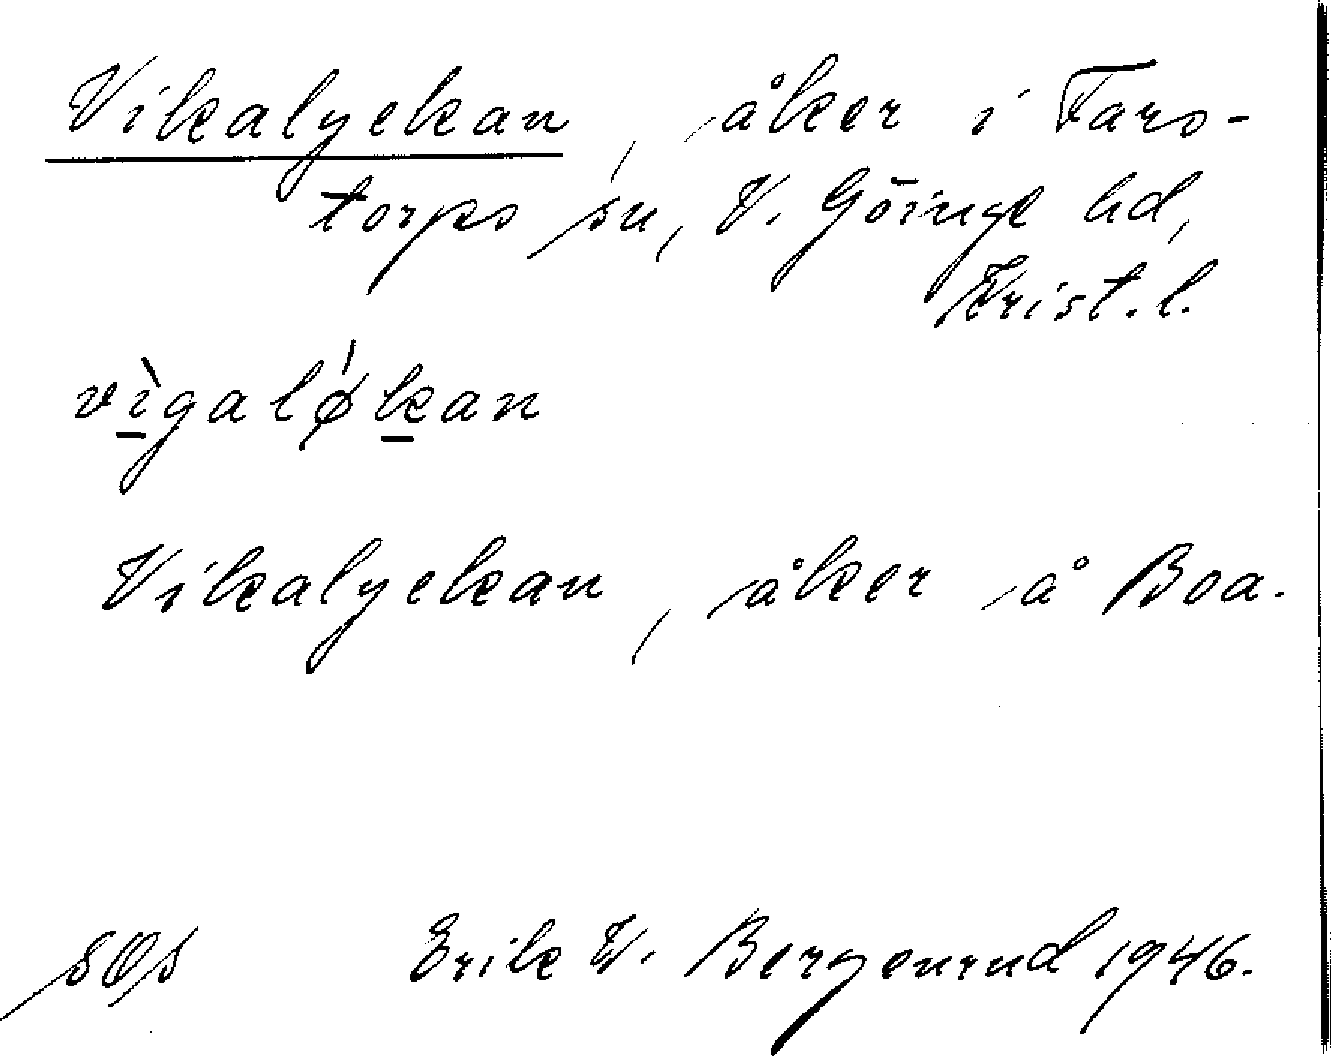 Vikalyckan, åker i Fars-
torps sn, V. Göinge hd,
Krist. l.
vìgalǿkan
Vikalyckan, åker å Boa.
Erik W. Bergenrud 1946.